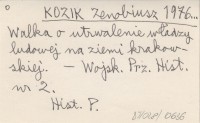 KOZIK Zenobiusz 1976...
Walka o utrwalenie władzy
ludowej na ziemi krakow-
skiej. – Wojsk. Prz. Hist.
nr 2.
Hist. P.